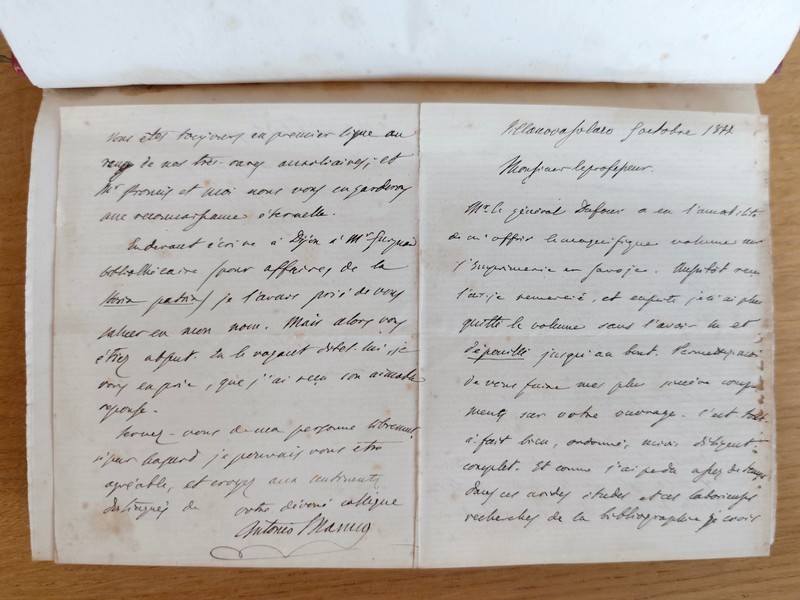 vous êtes toujours en premier ligne au
rang de nos très rares auxiliaires; et
Mr Promis et moi nous vous en garderons
une reconnaissance éternelle.
En devant écrire à Dijon à Mr
bibliothécaire (pour affaires de la
Storia patria) je l'avais prié de vous
saluer en mon nom. Mais alors vous
étiez absent. En le voyant dites lui, je
vous en prie, que j'ai reçu son aimable
reponse.
Servez-vous de ma personne librement
si par hazard je pouvais vous être
agréable, et croyez aux sentiments
distingués de votre dévoué collègue
Antonio Manno
Villanova Solaro 5 octobre 1877
Monsieur le professeur.
Mr le général Dufour a eu l'amabilité
de m'offrir le magnifique volume sur
l'Imprimerie en Savoje. Aussitôt reçu
l'ai-je remercié, et ensuite je n'ai plus
quitté le volume sans l'avoir lu et
dépouillé jusqu'au bout. Permettez-moi
de vous faire mes plus sincères compli
ments sur votre ouvrage. C'est tout
à fait bien, ordonné, diligent
complet. Et comme j'ai perdu assez de temps
dans ces arides études et ces laborieuses
recherches de la bibliographie je crois